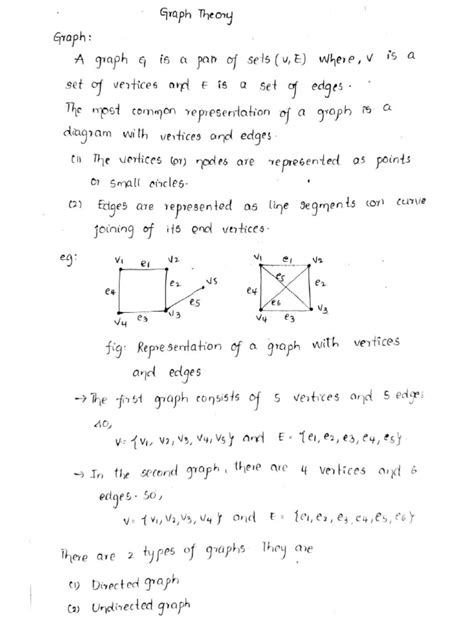 Graph Theory
Graph:
A graph G is a pair of sets (V, E) where, V is a
set of vertices and E is a set of edges.
The most common representation of a graph is a
diagram with vertices and edges.
(1) The vertices (or) nodes are represented as points
or small circles.
(2) Edges are represented as line segments (or) curve
joining of its end vertices.
eg:
V1 e1 V2
e4 e2 V5
e5
V4 e3 V3
V1 e1 V2
e5
e4 e2
e6
V4 e3 V3
fig: Representation of a graph with vertices
and edges
→ The first graph consists of 5 vertices and 5 edges
so,
V = {V1, V2, V3, V4, V5} and E = {e1, e2, e3, e4, e5}.
→ In the second graph, there are 4 vertices and 6
edges. so,
V = {V1, V2, V3, V4} and E = {e1, e2, e3, e4, e5, e6}
There are 2 types of graphs They are
(1) Directed graph
(2) Undirected graph